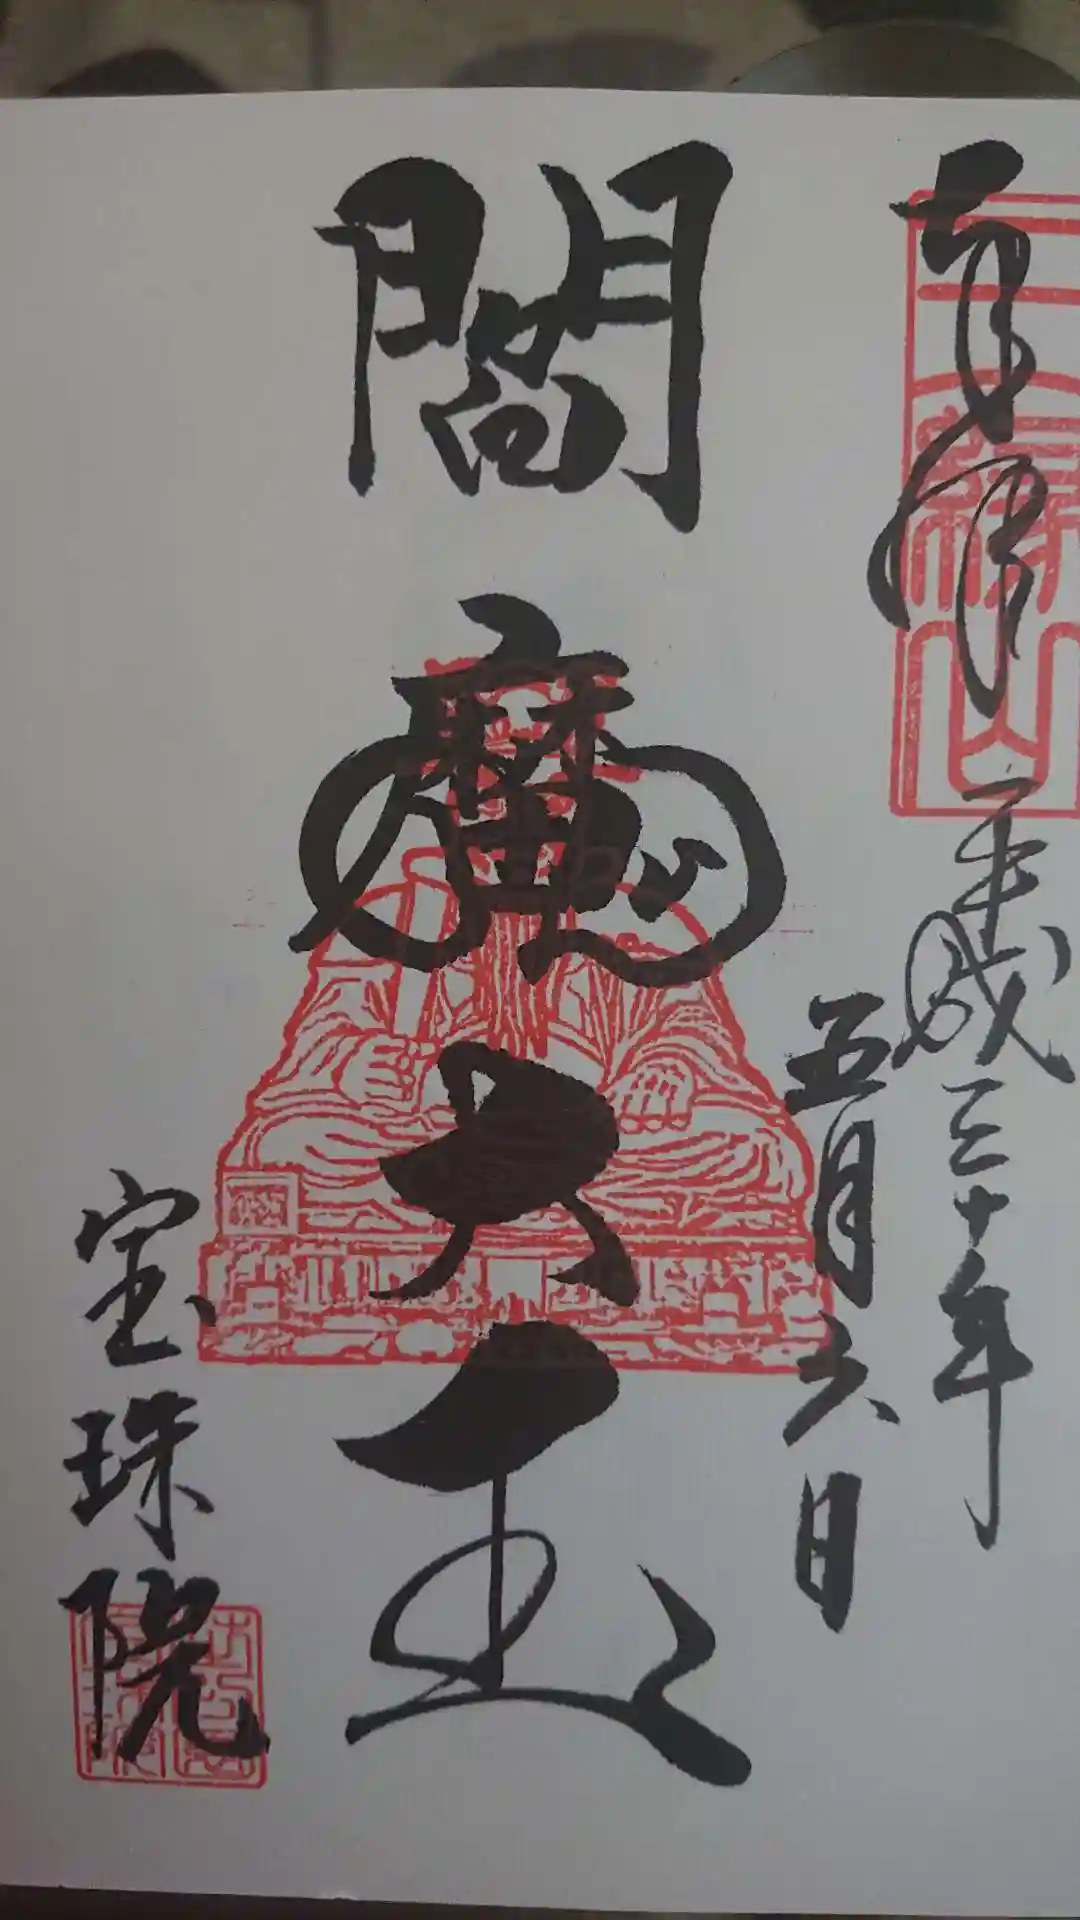 奉拝
三縁山
平成三十年
五月六日
閻魔大王
宝珠院